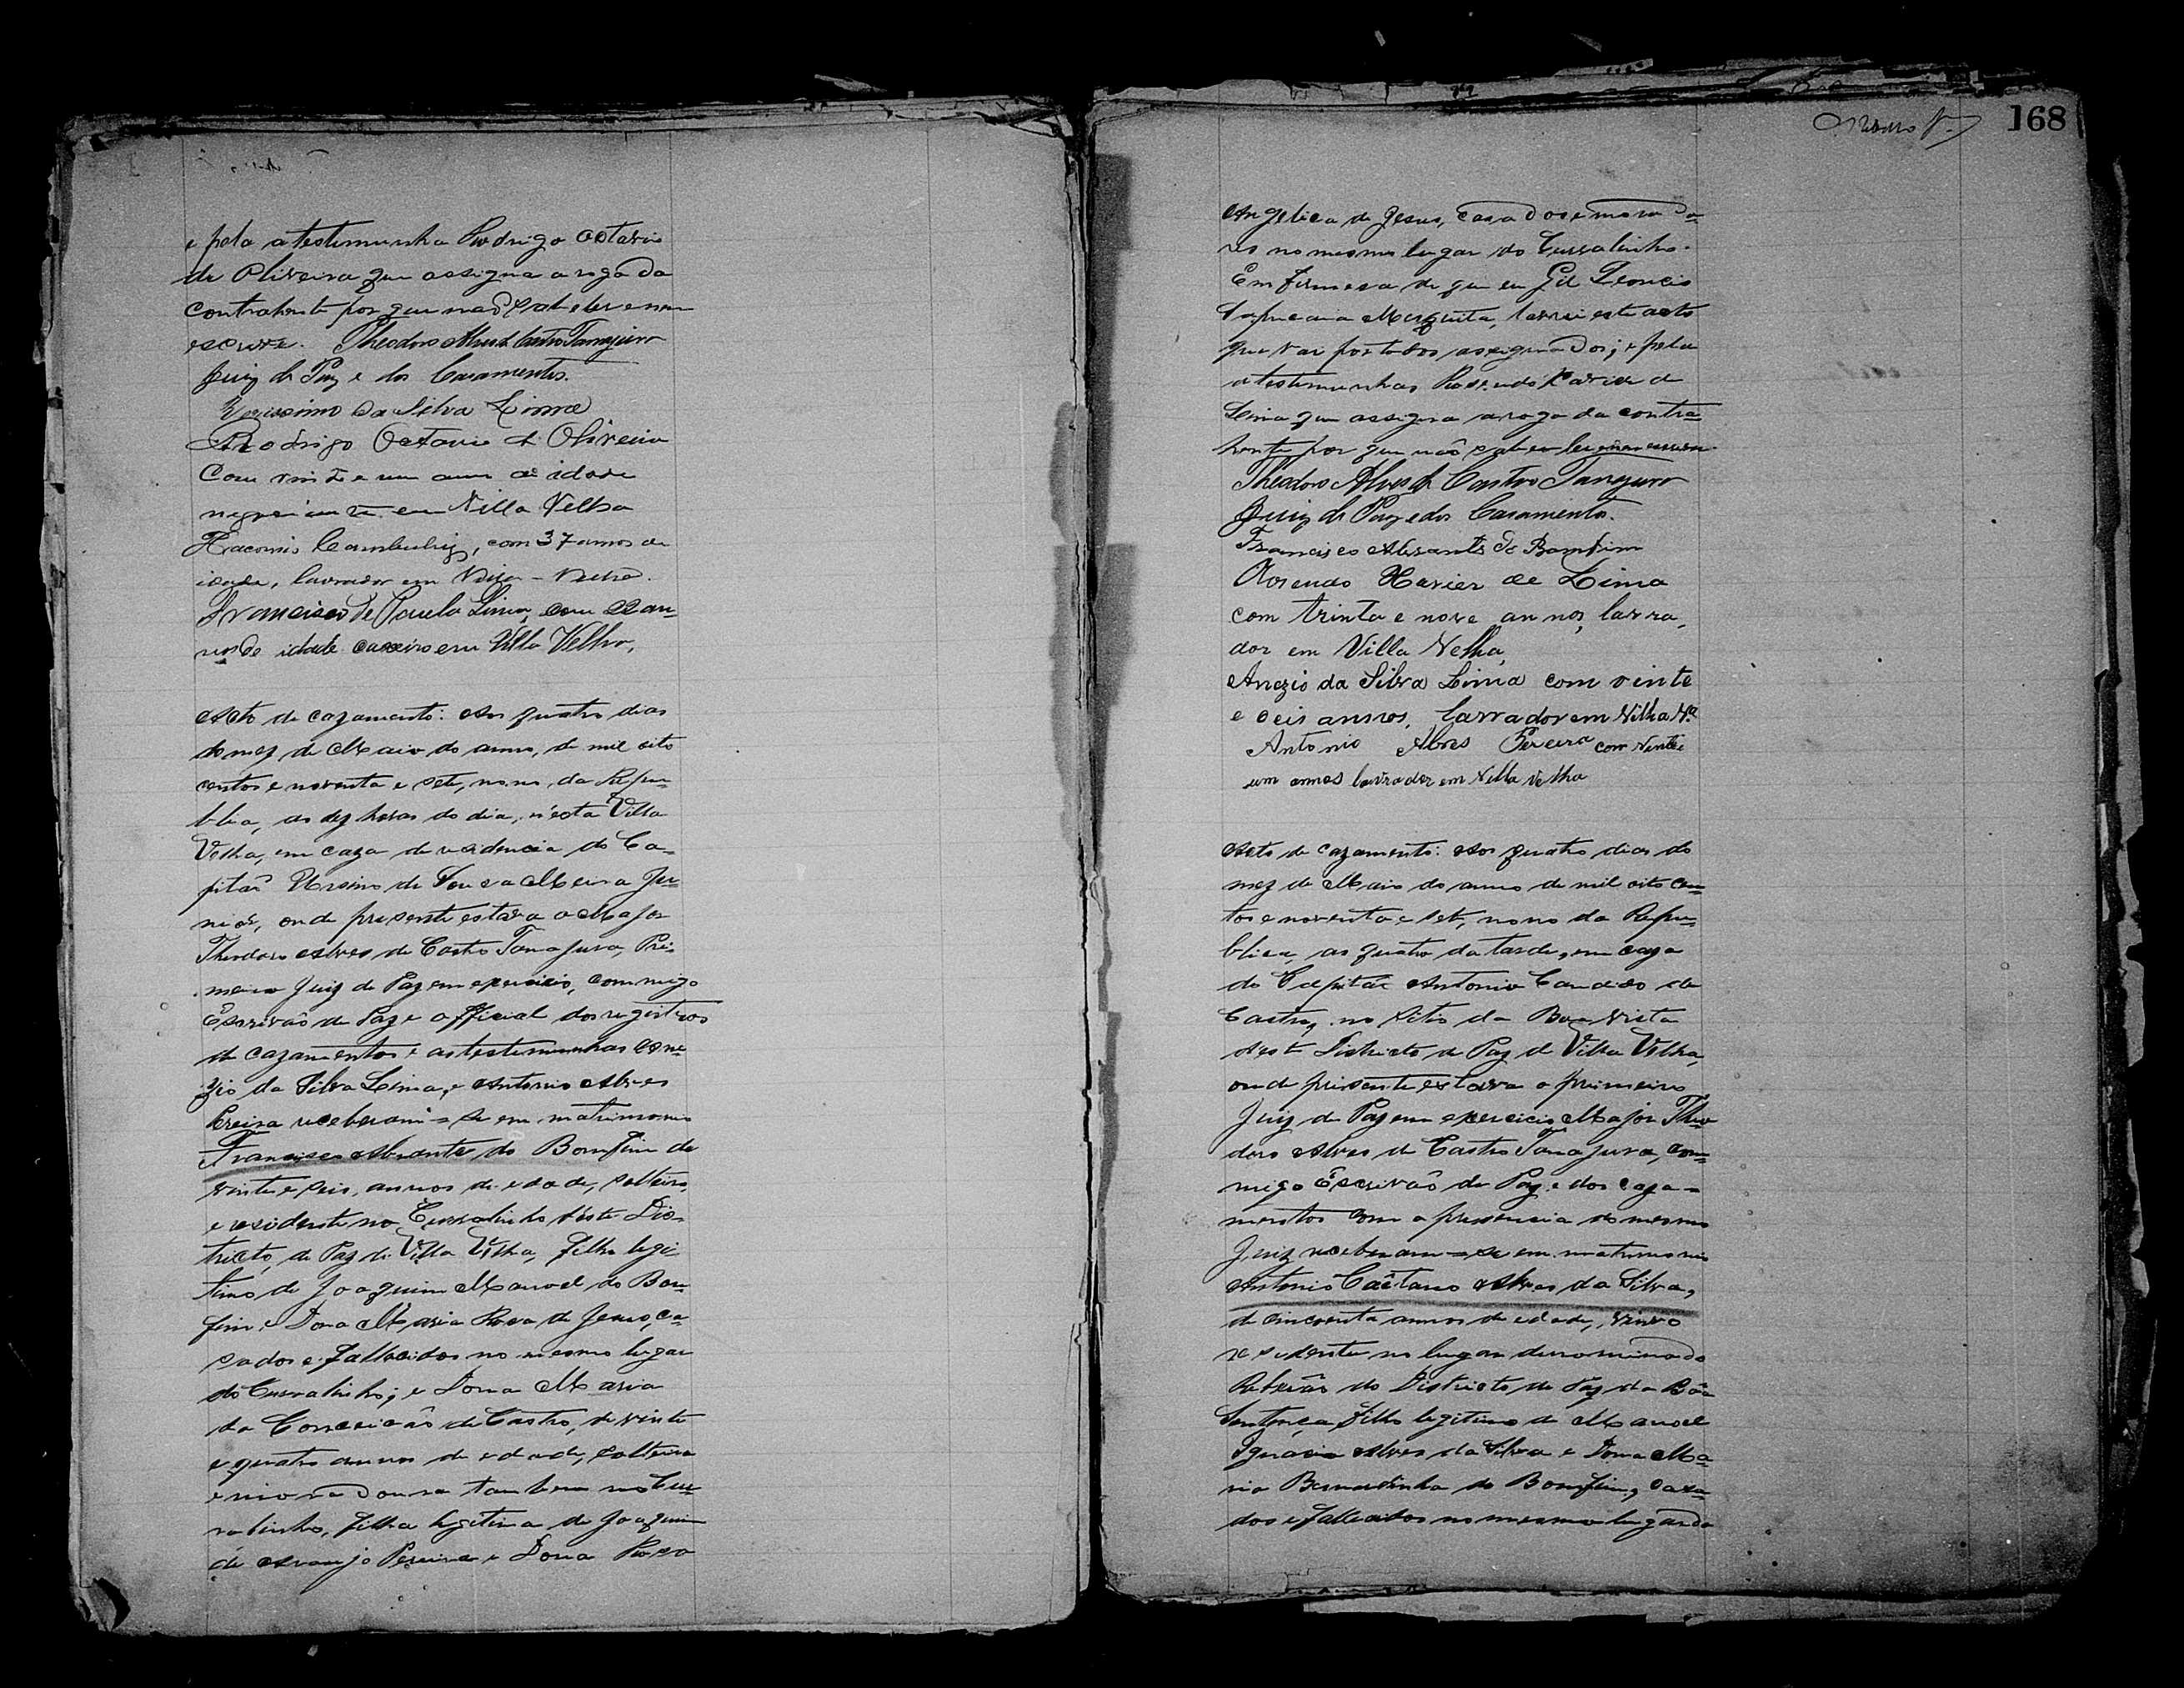 e pela a testemunha Rodrigo Octavio
de Oliveira que assigna a rogo da
contrahente por que não sabe ler e nem
escrever. Theodoro Alves de Castro Tanajura
Juiz de Paz e dos Casamentos.
Verissimo da Silva Lima
Rodrigo Octavio de Oliveira
Com vinte e um annos de idade
negociante em Villa Velha
com 37 annos de
idade, lavrador em Villa-Velha.
Francisco de Paula Lima, com 22 an-
nos de idade caxeiro em Villa Velha,
Acto de cazamento: Aos quatro dias
do mez de Maio do anno, de mil oito
centos e noventa e sete, nono da Repu-
blica, as dez horas do dia, n'esta Villa
Velha, em caza de residencia do Ca-
pitão Ursino de Souza Meira Ju-
nior, onde presente estava o Major
Theodoro Alves de Castro Tanajura, Pri-
meiro Juiz de Paz em exercicio, commigo
Escrivão de Paz e official dos registros
de cazamentos e as testemunhas Ane-
zio da Silva Lima, e Antonio Alves
Pereira receberam=se em matrimonio
Francisco Abrantes do Bomfim de
vinte e seis, annos de edade, solteiro,
e residente no Curralinho deste Dis-
tricto, de Paz de Villa Velha, filho legi
timo de Joaquim Manoel do Bom-
fim, e Dona Maria Rosa de Jesus, ca-
sados e fallecidos no mesmo lugar
do Curralinho; e Dona Maria
da Conceicão de Castro, de vinte
e quatro annos de edade, solteira
e moradoura tambem no Cur-
ralinho, filha legitima de Joaquim
de Araujo Pereira e Dona Rosa
168
Angelica de Jesus, casados e morado-
res no mesmo lugar do Curralinho.
Em firmeza de que eu Gil Leoncio
Sapucaia Mesquita, lavrei este acto
que vai por todos assignados; e pela
a testimunhas Rosendo Xavier de
Lima que assigna a rogo da contra-
hente por que não saber ler e nem escrever
Theodoro Alves de Castro Tanajura
Juiz de Paz e dos Casamentos.
Francisco Abrantes do Bomfim
Rosendo Xavier de Lima
com trinta e nove annos, lavra,
dor em Villa Velha,
Anezio da Silva Lima com vinte
e seis annos, lavrador em Villa Va.
Antonio Alves Pereira com vinte e
um annos lavrador em Villa velha
Acto de cazamento: Aos quatro dias do
mez de Maio do anno de mil oito cen-
tos e noventa e sete, nono da Repu-
blica, as quatro da tarde, em caza
do Capitão Antonio Candido de
Castro, no sitio da Boa Vista
deste Districto de Paz de Villa Velha,
onde presente estava o primeiro
Juiz de Paz em exercicio Major Theo
doro Alves de Castro Tanajura, com-
migo Escrivão de Paz e dos caza-
mentos com a presencia do mesmo
Juiz receberam=se em matrimonio
Antonio Caêtano Alves da Silva,
de cincoenta annos de edade, viuvo
residente no lugar denominado
Ribeirão do Districto de Paz da Bôa
Sentença, filho legitimo de Manoel
Ignacio Alves da Silva e Dona Ma-
ria Bernardinha do Bomfim, casa-
dos e fallecidos no mesmo lugar do